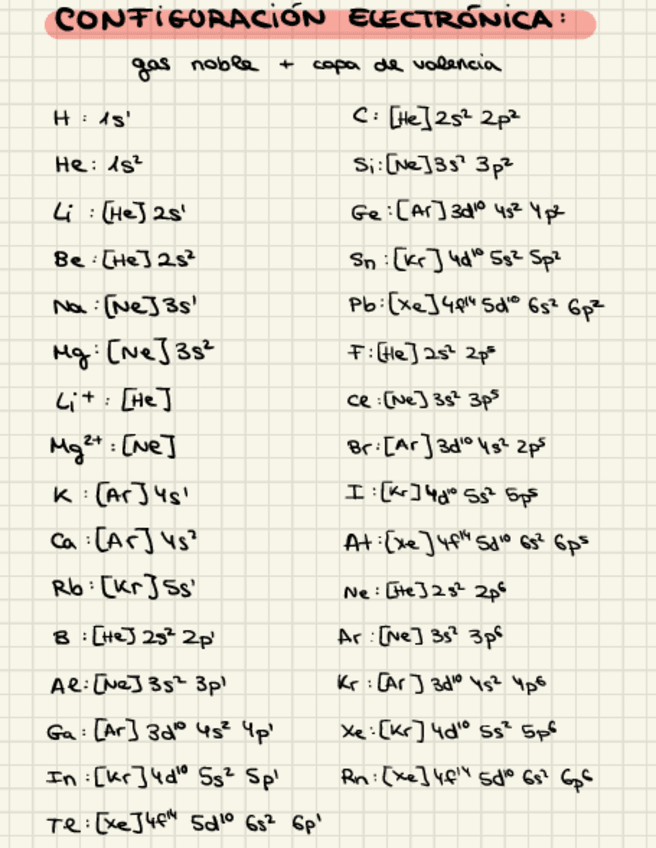 CONFIGURACIÓN ELECTRÓNICA:
gas noble + capa de valencia
H : 1s¹
He: 1s²
Li : [He] 2s¹
Be : [He] 2s²
Na : [Ne] 3s¹
Mg : [Ne] 3s²
Li⁺ : [He]
Mg²⁺ : [Ne]
K : [Ar] 4s¹
Ca : [Ar] 4s²
Rb : [Kr] 5s¹
B : [He] 2s² 2p¹
Al : [Ne] 3s² 3p¹
Ga : [Ar] 3d¹⁰ 4s² 4p¹
In : [Kr] 4d¹⁰ 5s² 5p¹
Tl : [Xe] 4f¹⁴ 5d¹⁰ 6s² 6p¹
C : [He] 2s² 2p²
Si : [Ne] 3s² 3p²
Ge : [Ar] 3d¹⁰ 4s² 4p²
Sn : [Kr] 4d¹⁰ 5s² 5p²
Pb : [Xe] 4f¹⁴ 5d¹⁰ 6s² 6p²
F : [He] 2s² 2p⁵
Cl : [Ne] 3s² 3p⁵
Br : [Ar] 3d¹⁰ 4s² 2p⁵
I : [Kr] 4d¹⁰ 5s² 5p⁵
At : [Xe] 4f¹⁴ 5d¹⁰ 6s² 6p⁵
Ne : [He] 2s² 2p⁶
Ar : [Ne] 3s² 3p⁶
Kr : [Ar] 3d¹⁰ 4s² 4p⁶
Xe : [Kr] 4d¹⁰ 5s² 5p⁶
Rn : [Xe] 4f¹⁴ 5d¹⁰ 6s² 6p⁶